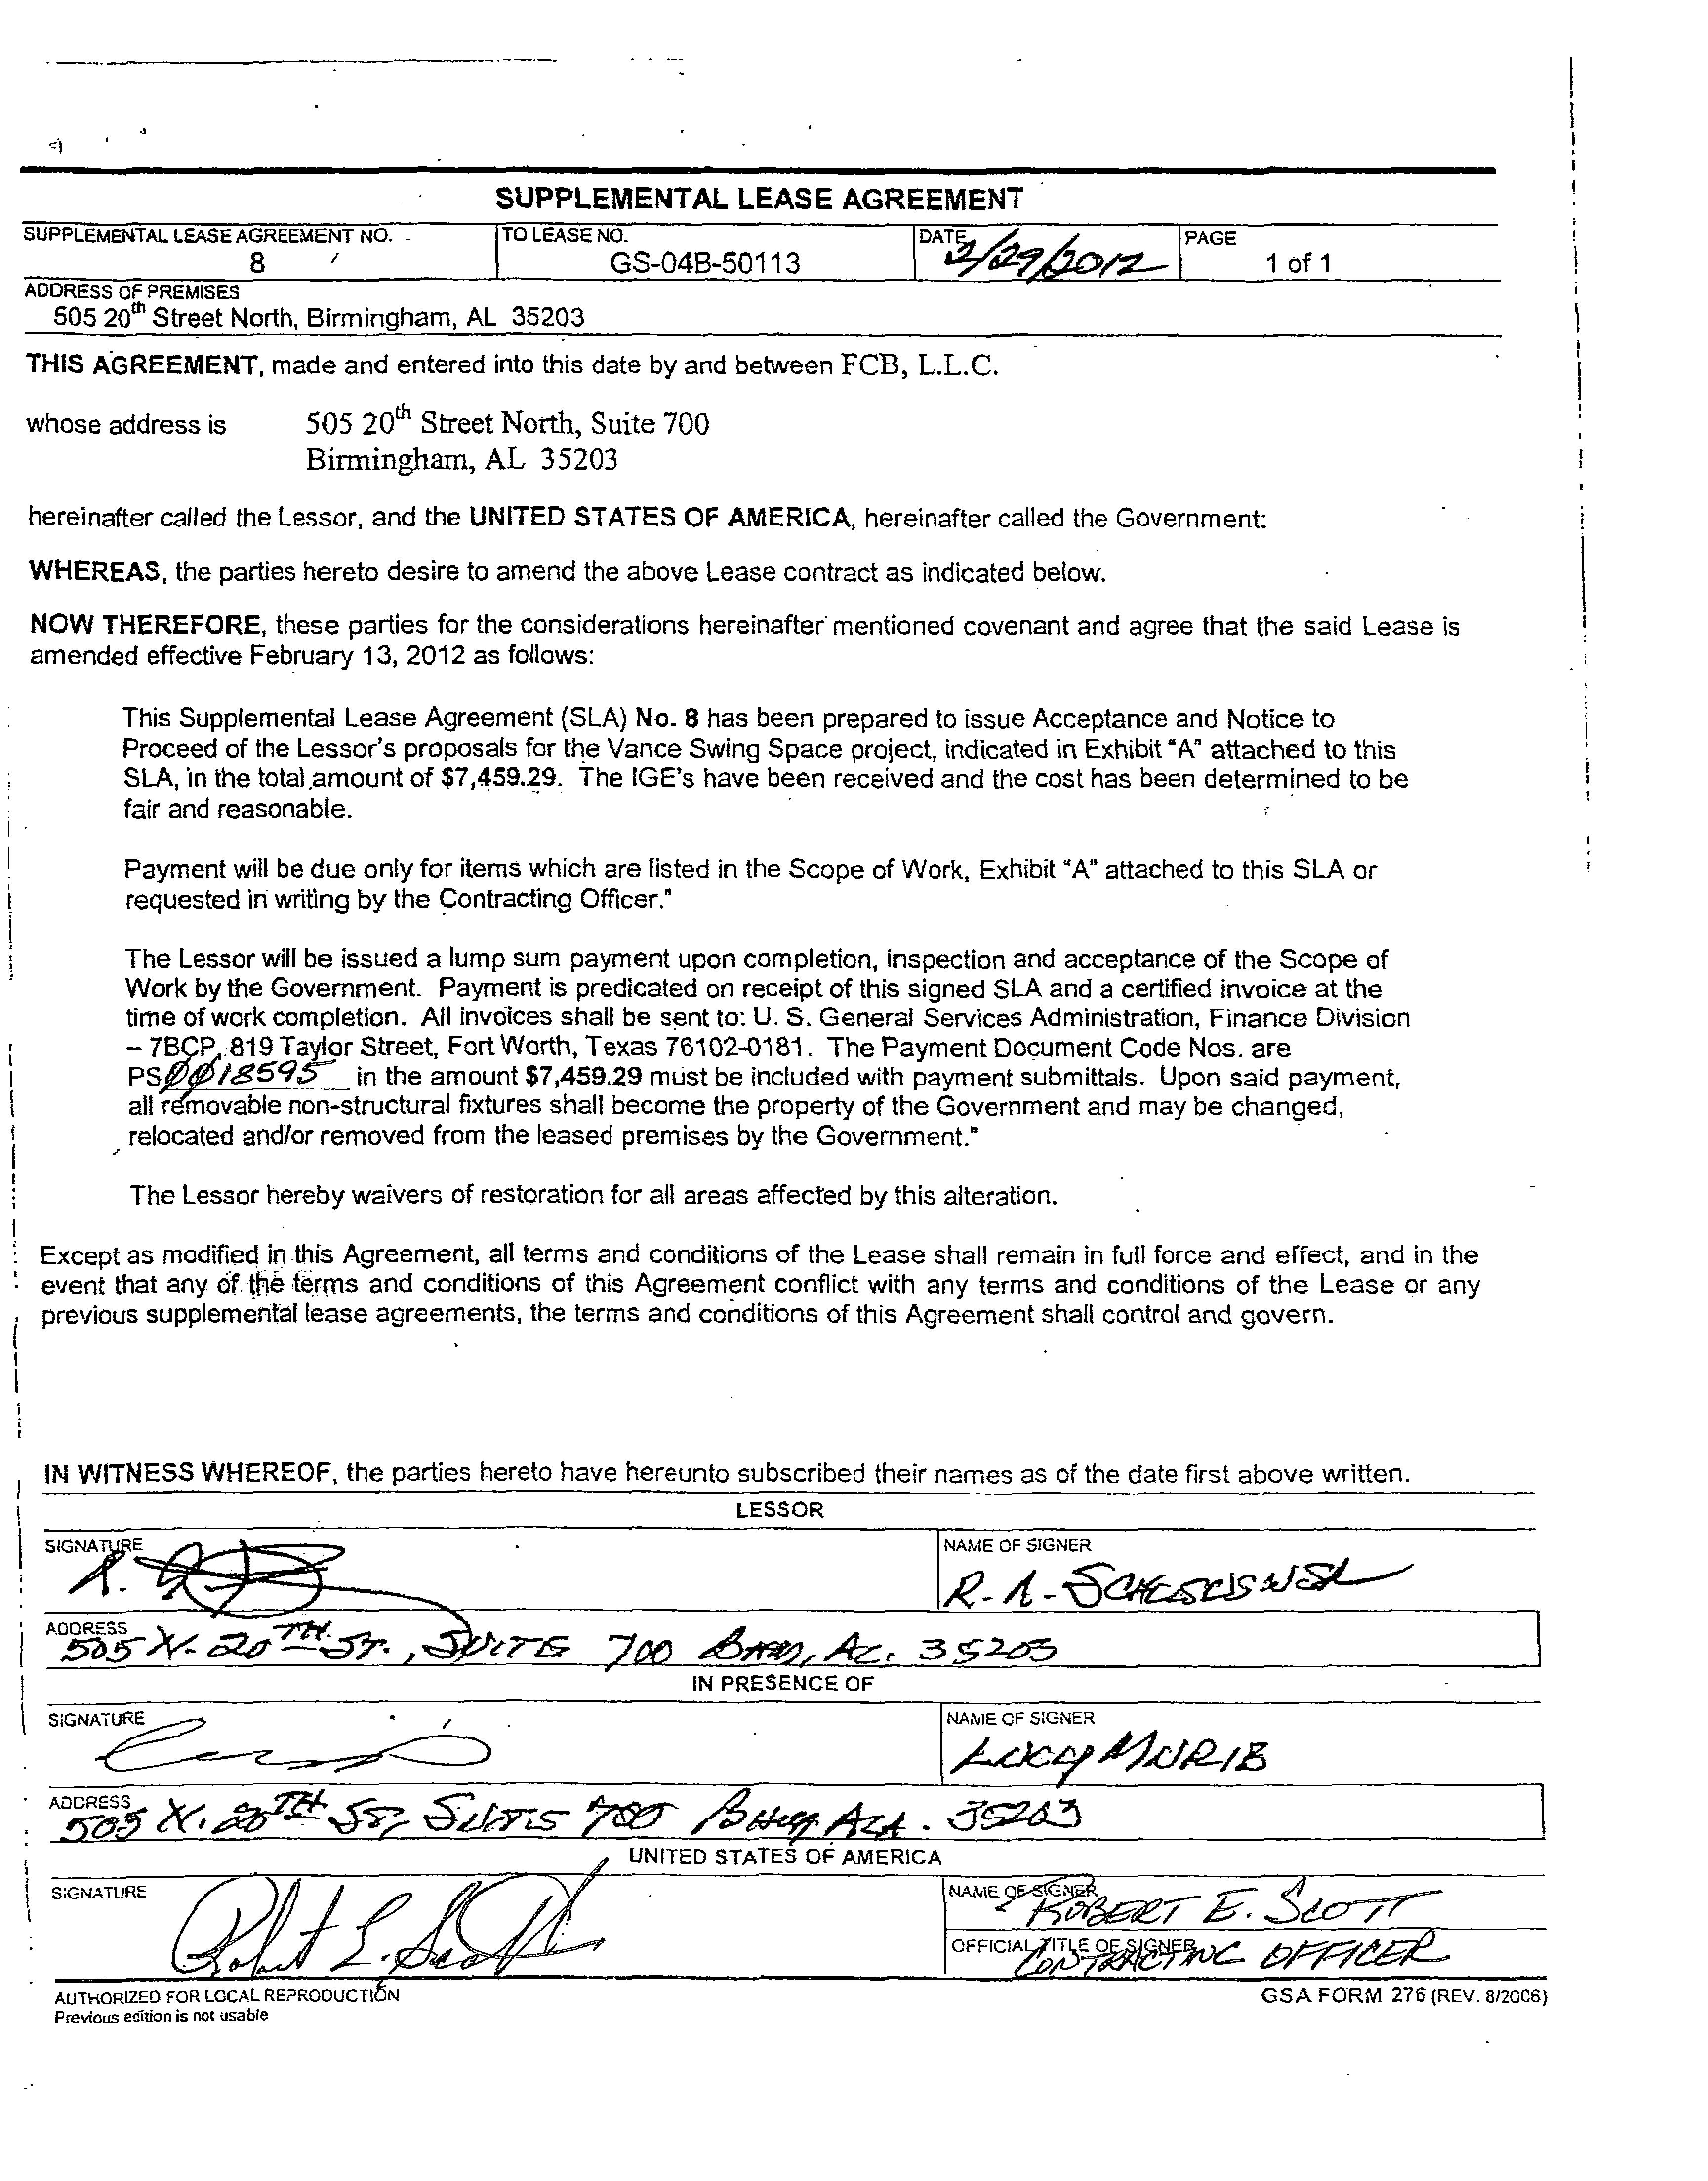 SUPPLEMENTAL LEASE AGREEMENT
SUPPLEMENTAL LEASE AGREEMENT NO. TO LEASE NO. DATE PAGE
8 GS-04B-50113 2/29/2012 1 of 1
ADDRESS OF PREMISES
505 20th Street North, Birmingham, AL 35203
THIS AGREEMENT, made and entered into this date by and between FCB, L.L.C.
whose address is 505 20th Street North, Suite 700
Birmingham, AL 35203
hereinafter called the Lessor, and the UNITED STATES OF AMERICA, hereinafter called the Government:
WHEREAS, the parties hereto desire to amend the above Lease contract as indicated below.
NOW THEREFORE, these parties for the considerations hereinafter mentioned covenant and agree that the said Lease is
amended effective February 13, 2012 as follows:
This Supplemental Lease Agreement (SLA) No. 8 has been prepared to issue Acceptance and Notice to
Proceed of the Lessor's proposals for the Vance Swing Space project, indicated in Exhibit "A" attached to this
SLA, in the total amount of $7,459.29. The IGE's have been received and the cost has been determined to be
fair and reasonable.
Payment will be due only for items which are listed in the Scope of Work, Exhibit "A" attached to this SLA or
requested in writing by the Contracting Officer."
The Lessor will be issued a lump sum payment upon completion, inspection and acceptance of the Scope of
Work by the Government. Payment is predicated on receipt of this signed SLA and a certified invoice at the
time of work completion. All invoices shall be sent to: U. S. General Services Administration, Finance Division
– 7BCP, 819 Taylor Street, Fort Worth, Texas 76102-0181. The Payment Document Code Nos. are
PS0018595 in the amount $7,459.29 must be included with payment submittals. Upon said payment,
all removable non-structural fixtures shall become the property of the Government and may be changed,
relocated and/or removed from the leased premises by the Government."
The Lessor hereby waivers of restoration for all areas affected by this alteration.
Except as modified in this Agreement, all terms and conditions of the Lease shall remain in full force and effect, and in the
event that any of the terms and conditions of this Agreement conflict with any terms and conditions of the Lease or any
previous supplemental lease agreements, the terms and conditions of this Agreement shall control and govern.
IN WITNESS WHEREOF, the parties hereto have hereunto subscribed their names as of the date first above written.
LESSOR
SIGNATURE NAME OF SIGNER
R. A.
ADDRESS
505 N. 20TH ST., SUITE 700 35203
IN PRESENCE OF
SIGNATURE NAME OF SIGNER
Lucy
ADDRESS
505 N. 20TH ST, SUITE 700 ALA. 35203
UNITED STATES OF AMERICA
SIGNATURE NAME OF SIGNER
Robert E. Scott ROBERT E. SCOTT
OFFICIAL TITLE OF SIGNER
CONTRACTING OFFICER
AUTHORIZED FOR LOCAL REPRODUCTION GSA FORM 276 (REV. 8/2006)
Previous edition is not usable